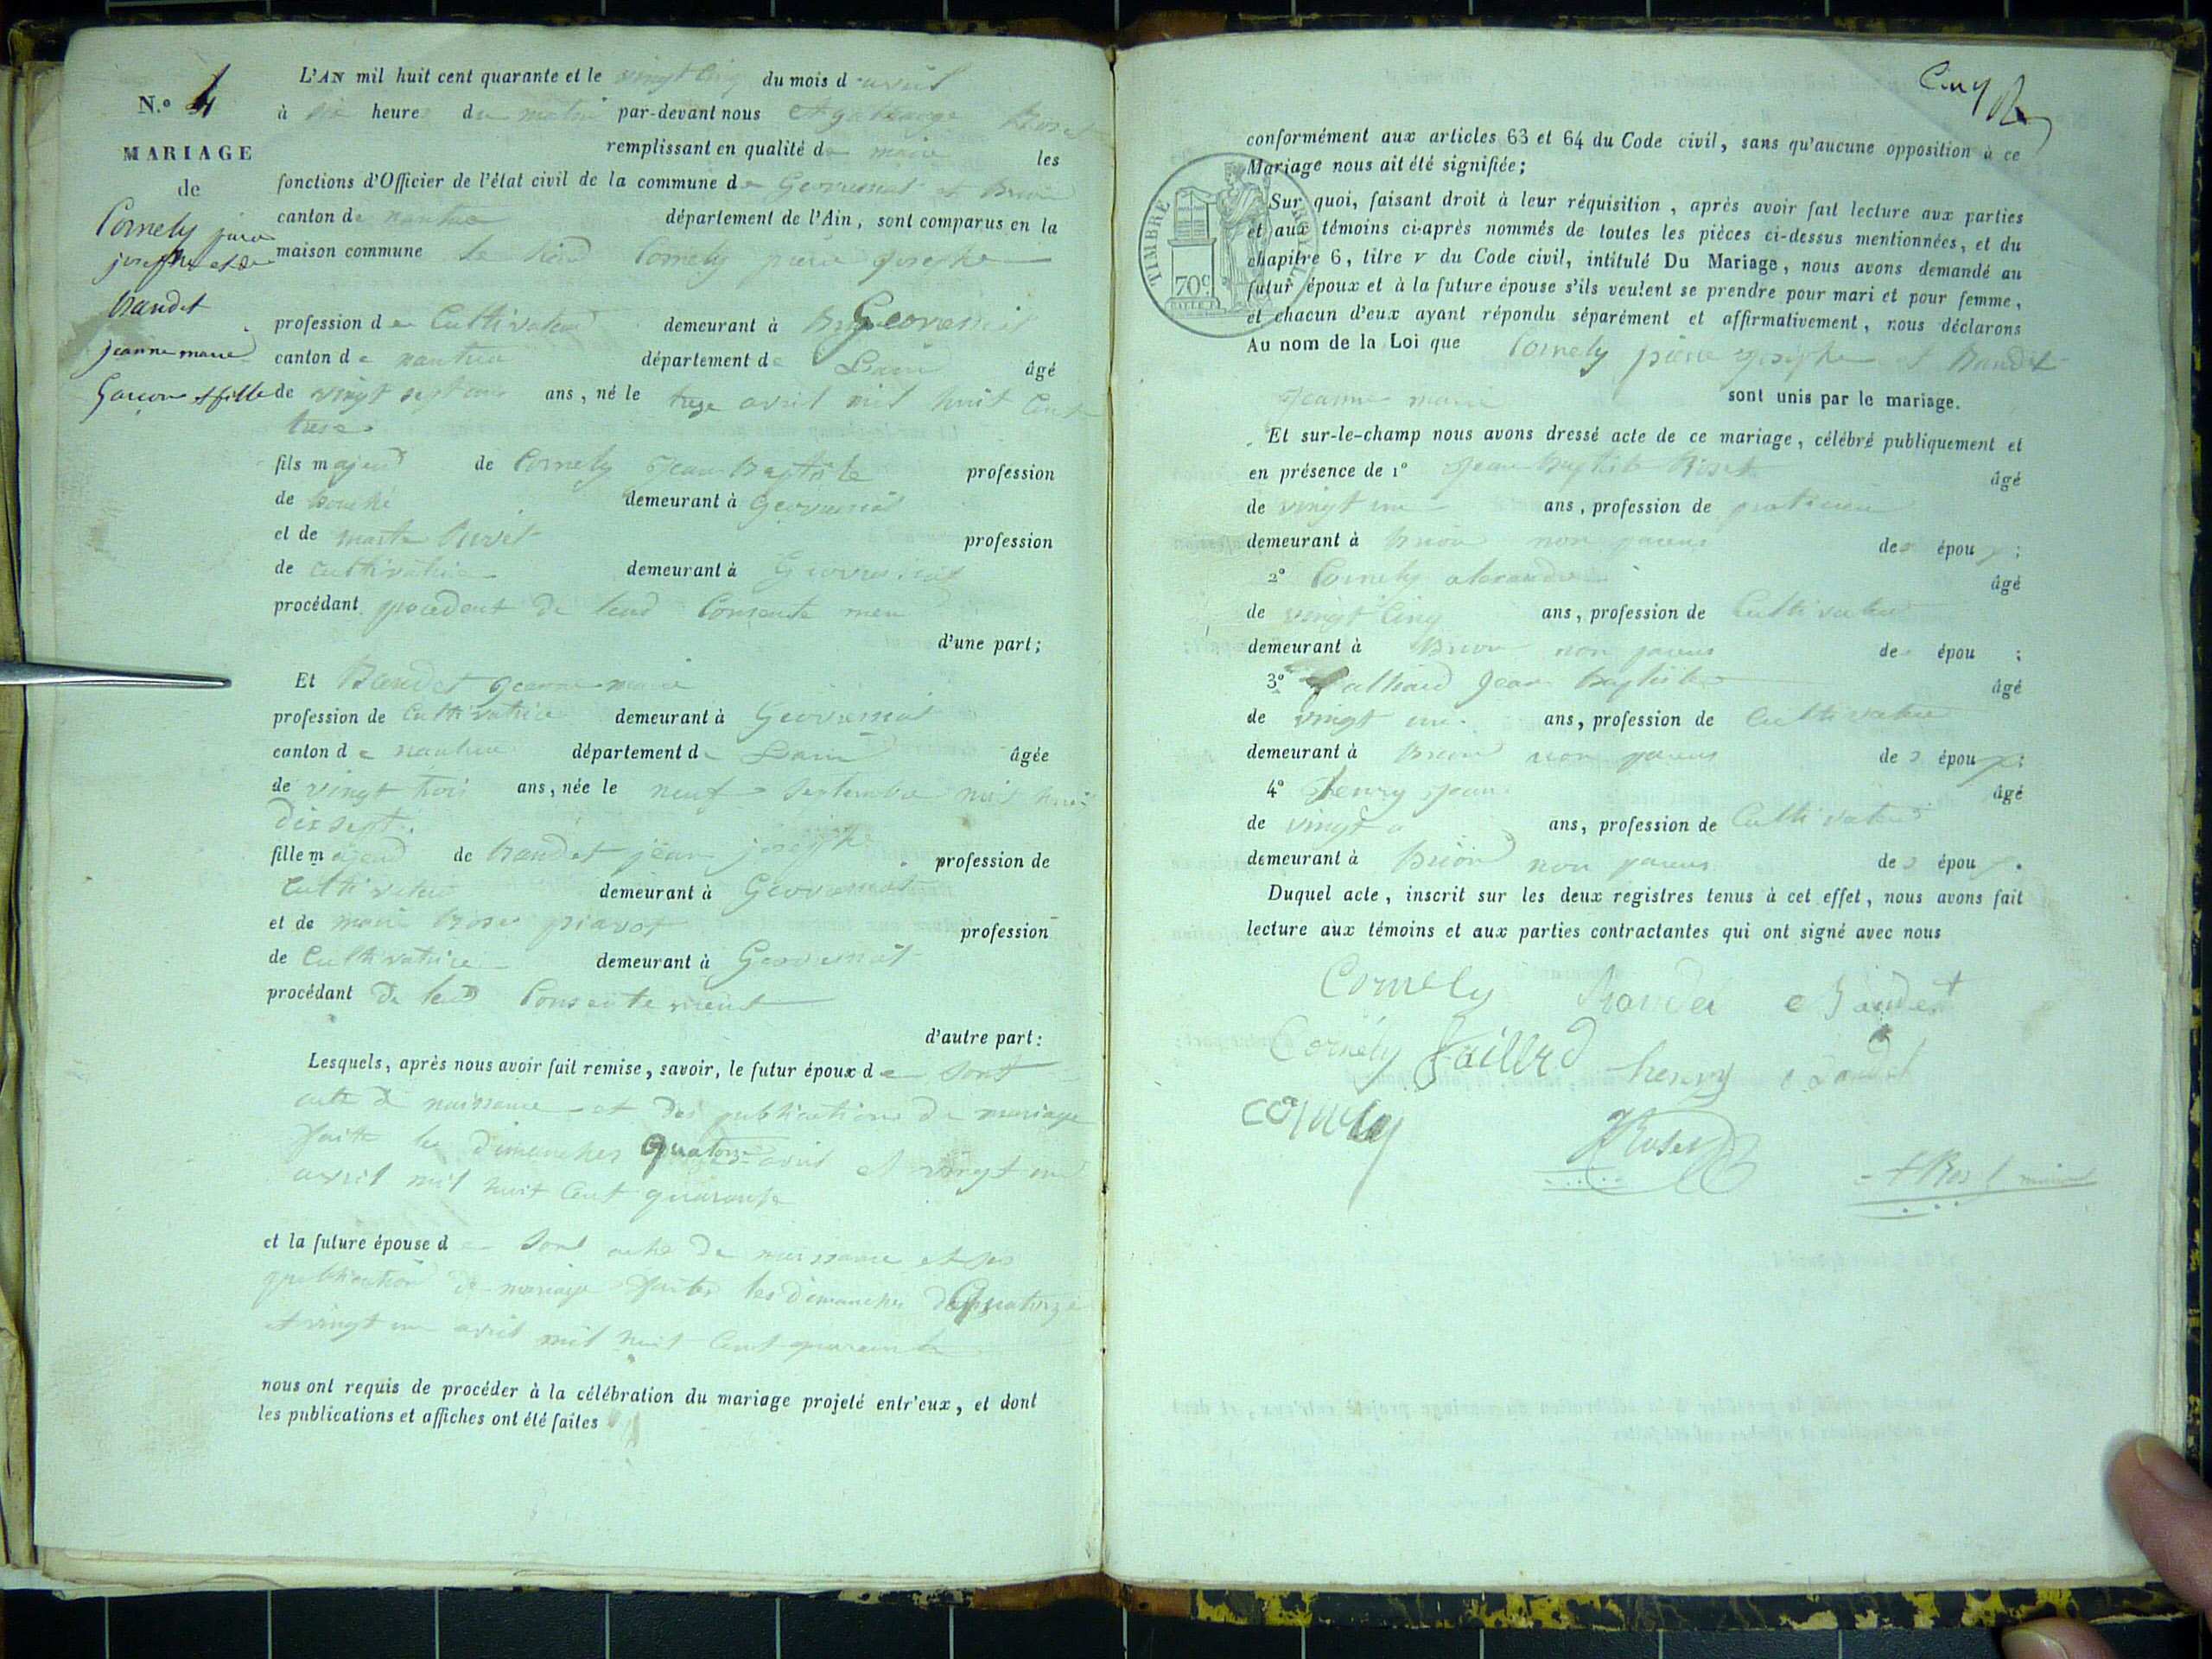 N.º 4
MARIAGE
de
Cornely
joseph et de
Baudet
jeanne marie
Garcon et fille
L'AN mil huit cent quarante et le vingt cinq du mois d'avril
à dix heures du matin par-devant nous Rozet
remplissant en qualité de maire les
fonctions d'Officier de l'état civil de la commune de Geovressiat et Brion
canton de nantua département de l'Ain, sont comparus en la
maison commune le Cornely pierre joseph
profession de Cultivateur demeurant à Geovressiat
canton de nantua département de Lain âgé
de vingt sept ans ans, né le treze avril mil huit Cent
treze
fils majeur de Cornely Jean Baptiste profession
de demeurant à Geovressiat
et de profession
de cultivatrice demeurant à Geovressiat
procédant procedant de leur
d'une part;
Et Baudet jeanne marie
profession de Cultivatrice demeurant à Geovressiat
canton de nantua département de Lain âgée
de vingt trois ans, née le neuf Septembre mil huit
dix sept.
fille majeur de Baudet jean joseph profession de
Cultivateur demeurant à Geovressiat
et de marie profession
de Cultivatrice demeurant à Geovressiat
procédant de leur Consentement
d'autre part:
Lesquels, après nous avoir fait remise, savoir, le futur époux de sont
acte de naissance et des publications de mariage
faite les dimanches quatorze avril et vingt un
avril mil huit Cent quarante
et la future épouse de sont acte de naissance et
publication de mariage faites les dimanches quatorze
et vingt un avril mil huit Cent quarante
nous ont requis de procéder à la célébration du mariage projeté entr'eux, et dont
les publications et affiches ont été faites
Cinq
conformément aux articles 63 et 64 du Code civil, sans qu'aucune opposition à ce
Mariage nous ait été signifiée;
TIMBRE ROYAL
70c.
Sur quoi, faisant droit à leur réquisition, après avoir fait lecture aux parties
et aux témoins ci-après nommés de toutes les pièces ci-dessus mentionnées, et du
chapitre 6, titre v du Code civil, intitulé Du Mariage, nous avons demandé au
futur époux et à la future épouse s'ils veulent se prendre pour mari et pour femme,
et chacun d'eux ayant répondu séparément et affirmativement, nous déclarons
Au nom de la Loi que Cornely pierre joseph et Baudet
Jeanne marie sont unis par le mariage.
Et sur-le-champ nous avons dressé acte de ce mariage, célébré publiquement et
en présence de 1º Jean Baptiste Rozet âgé
de vingt un ans, profession de praticien
demeurant à Brion non parens des épou
2º Cornely alexandre âgé
de vingt Cinq ans, profession de Cultivateur
demeurant à Brion non parens des épou ;
3º Jean Baptiste âgé
de vingt un ans, profession de Cultivateur
demeurant à Brion non parens des époux;
4º henry Jean âgé
de vingt ans, profession de Cultivateur
demeurant à Brion non parens des époux.
Duquel acte, inscrit sur les deux registres tenus à cet effet, nous avons fait
lecture aux témoins et aux parties contractantes qui ont signé avec nous
Cornely Baudet Baudet
Cornely henry Baudet
cornely JRoset Roset